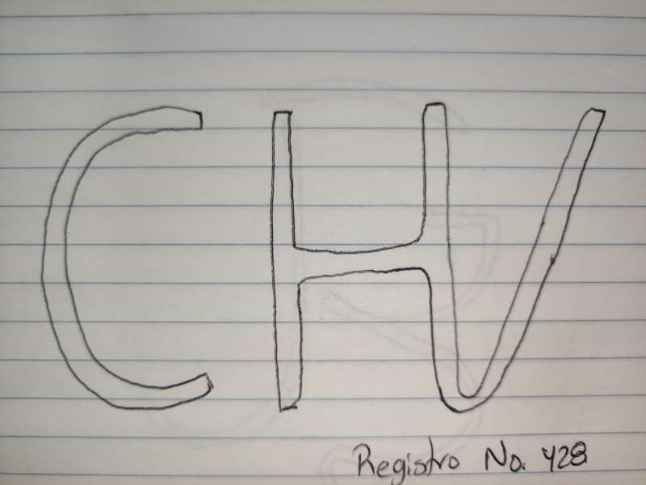 CHV
Registro No. 428